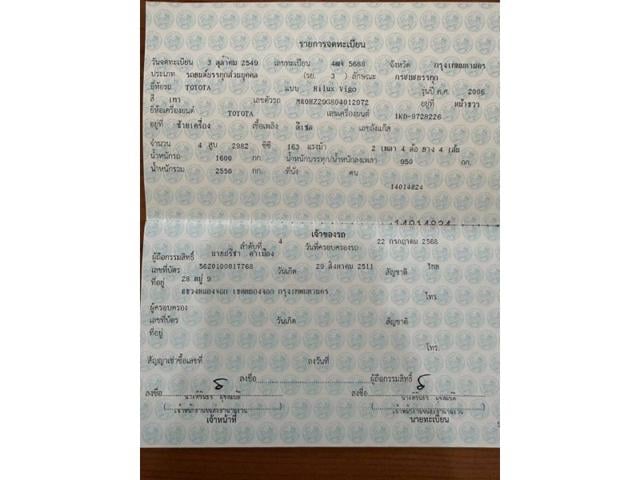 รายการจดทะเบียน
วันจดทะเบียน 3 ตุลาคม 2549 เลขทะเบียน 5688 จังหวัด กรุงเทพมหานคร
ประเภท รถยนต์บรรทุกส่วนบุคคล (รย. 3 ) ลักษณะ กระบะบรรทุก
ยี่ห้อรถ TOYOTA แบบ Hilux Vigo รุ่นปี ค.ศ. 2006
สี เทา เลขตัวรถ MR0HZ29G804012072 อยู่ที่ หน้าขวา
ยี่ห้อเครื่องยนต์ TOYOTA เลขเครื่องยนต์ 1KD-9728226
อยู่ที่ ซ้ายเครื่อง เชื้อเพลิง ดีเซล เลขถังแก๊ส
จำนวน 4 สูบ 2982 ซีซี 163 แรงม้า 2 เพลา 4 ล้อ ยาง 4 เส้น
น้ำหนักรถ 1600 กก. น้ำหนักบรรทุก/น้ำหนักลงเพลา 950 กก.
น้ำหนักรวม 2550 กก. ที่นั่ง คน
14014824
14014824
เจ้าของรถ
ลำดับที่ 4 วันที่ครอบครองรถ 22 กรกฎาคม 2568
ผู้ถือกรรมสิทธิ์ นายปรีชา คำเมือง
เลขที่บัตร 5620100017768 วันเกิด 29 สิงหาคม 2511 สัญชาติ ไทย
ที่อยู่ 28 หมู่ 9
แขวงหนองจอก เขตหนองจอก กรุงเทพมหานคร
โทร.
ผู้ครอบครอง
เลขที่บัตร วันเกิด สัญชาติ
ที่อยู่
โทร.
สัญญาเช่าซื้อเลขที่ ลงวันที่
ลงชื่อ ผู้ถือกรรมสิทธิ์
ลงชื่อ ลงชื่อ
เจ้าหน้าที่ นายทะเบียน